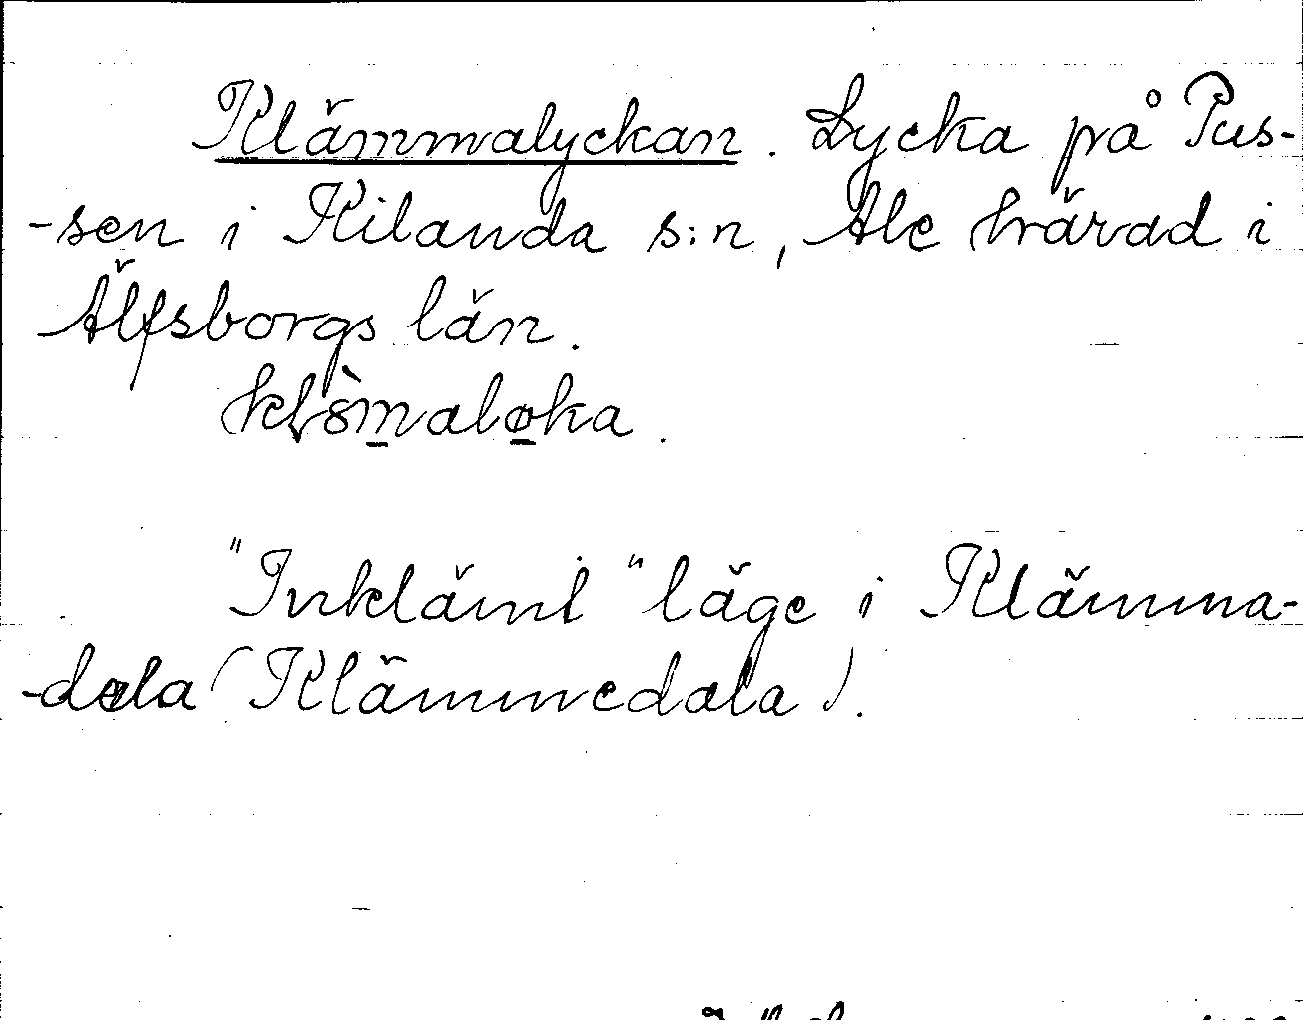 Klämmalyckan. Lycka på Pus-
-sen i Kilanda s:n, Ale härad i
Älfsborgs län.
"Inklämt" läge i Klämma-
-dala (Klämmedala).